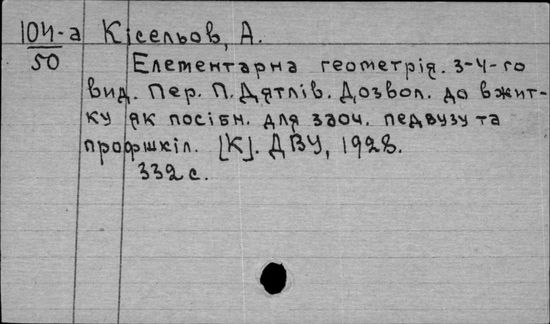 104-а Кісельов, А.
50 Елементарна геометрія. 3-4-го
вид. Пер. П. Дятлів. Дозвол. до вжит-
ку як посібн. для заоч. педвузу та
профшкіл. [К]. ДВУ, 1928.
332 с.